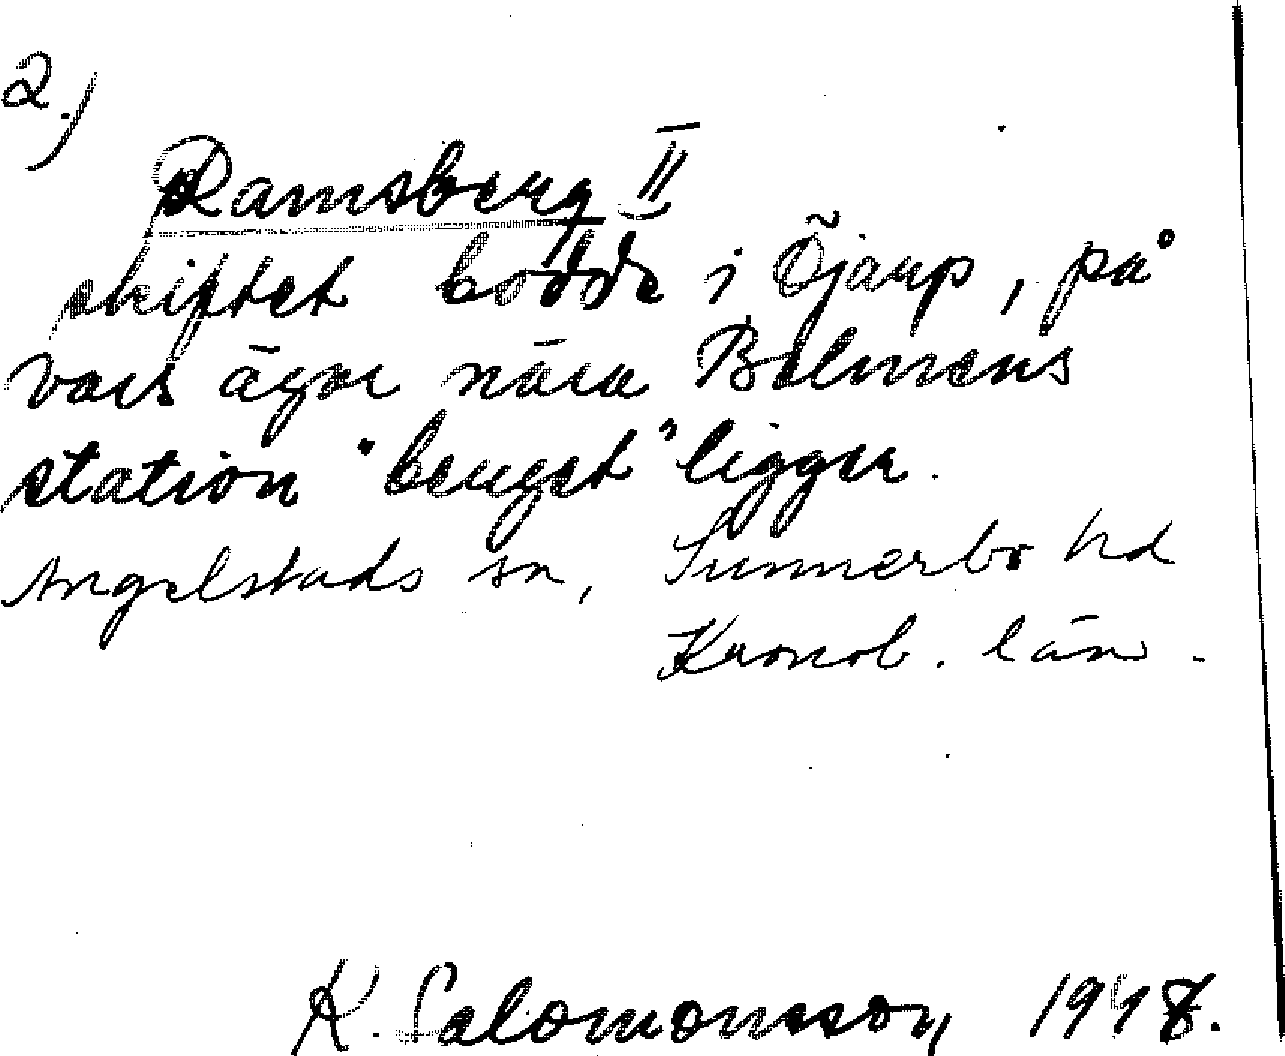 2.)
Ramsberg II
skiftet bodde i Öjarp, på
vars ägor nära Bolmens
station "berget" ligger.
Angelstads sn, Sunnerbo hd
Kronob. län.
K. Salomonsson, 1948.